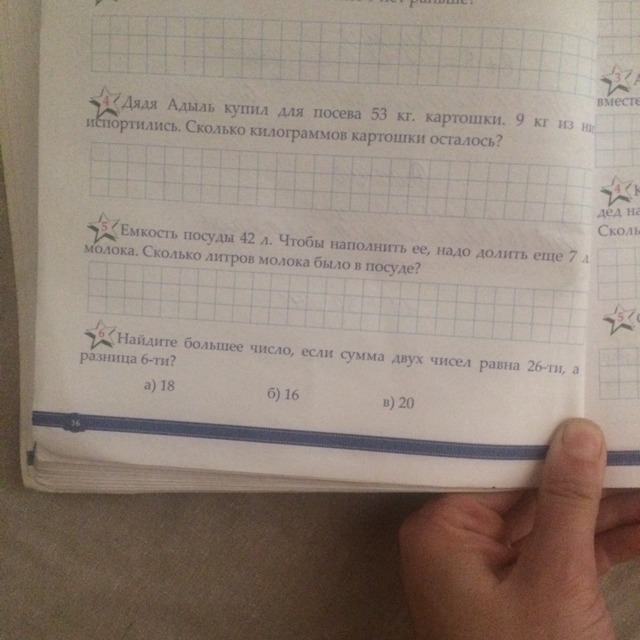 раньше?
4 Дядя Адыль купил для посева 53 кг. картошки. 9 кг из
испортились. Сколько килограммов картошки осталось?
5 Емкость посуды 42 л. Чтобы наполнить ее, надо долить еще 7 л
молока. Сколько литров молока было в посуде?
6 Найдите большее число, если сумма двух чисел равна 26-ти, а
разница 6-ти?
а) 18 б) 16 в) 20
36
3
вместе
4 К
дед на
Сколь
5